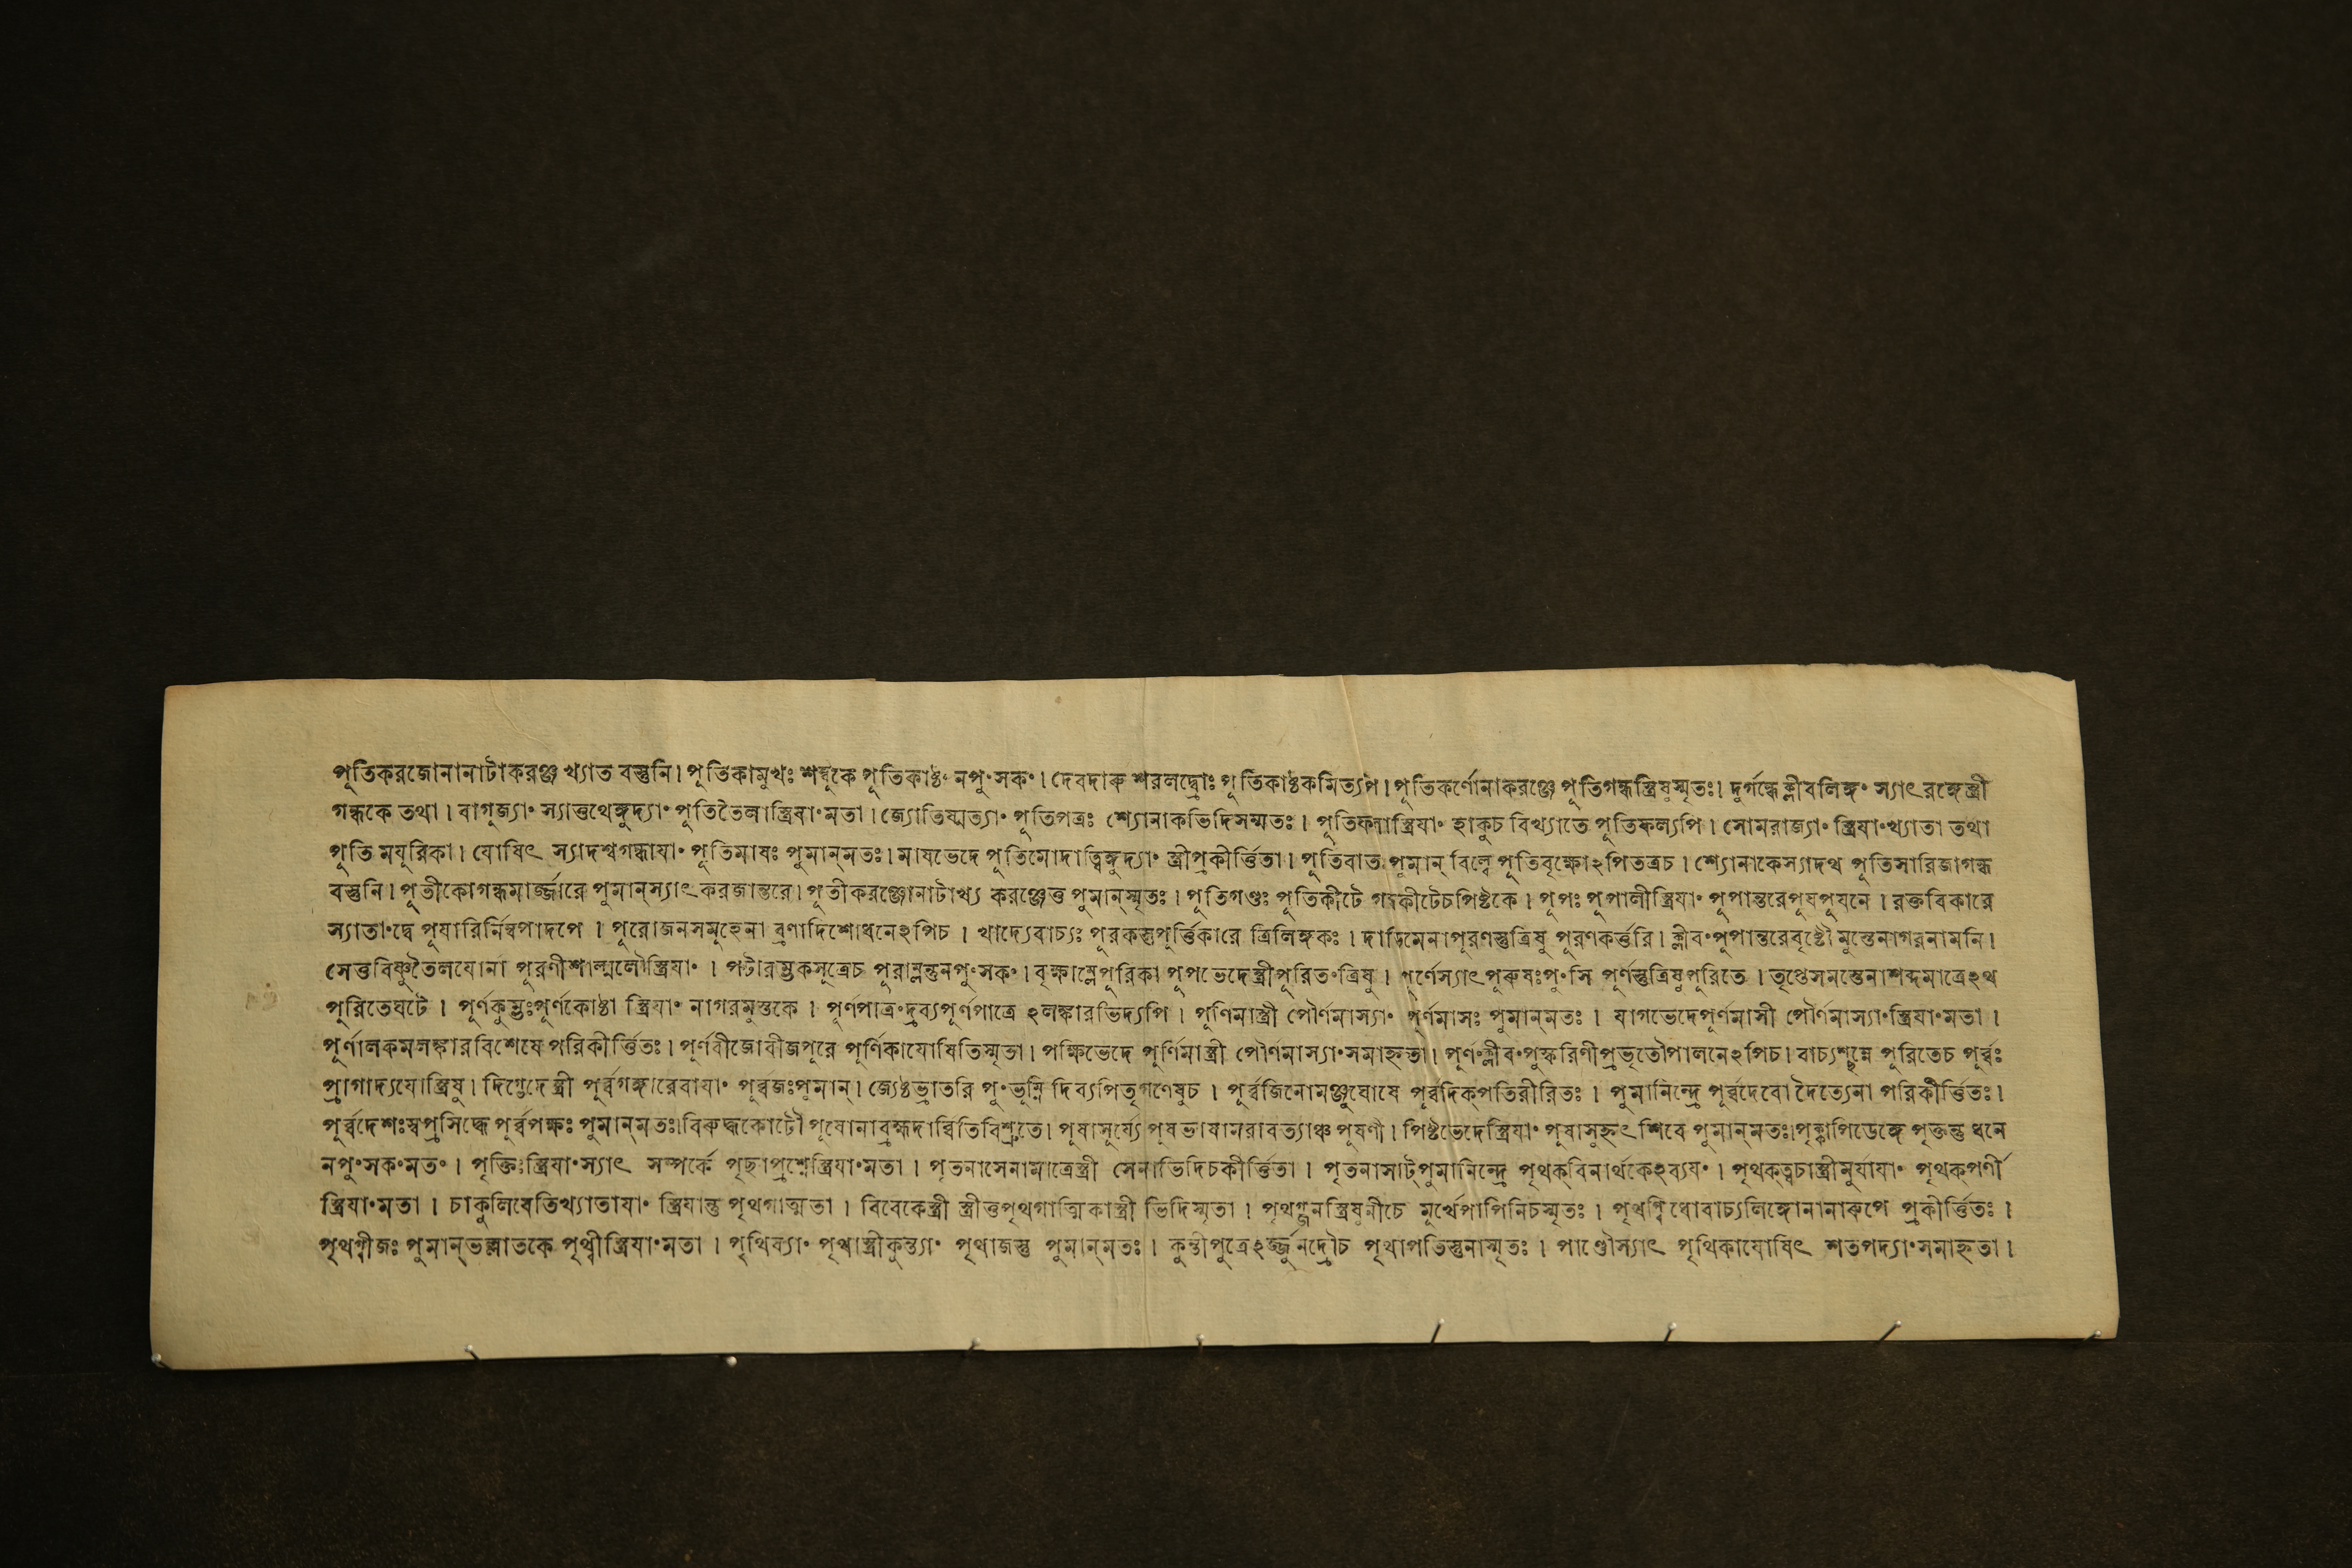 পূতিকরজোনানাটাকরঞ্জ খ্যাত বস্তুনি। পূতিকামুখঃ শম্বুকে পূতিকাষ্ঠং নপুংসকং। দেবদারু শরলদ্রোঃ পূতিকাষ্ঠকমিত্যপি। পূতিকর্ণোনাকরঞ্জে পূতিগন্ধস্ত্রিষুস্মৃতঃ। দুর্গন্ধেক্লীবলিঙ্গং স্যাৎ রঙ্গেস্ত্রী
গন্ধকে তথা। বাগুজ্যাং স্যাত্তথেঙ্গুদ্যাং পূতিতৈলাস্ত্রিযাং মতা। জ্যোতিষ্মত্যাং পূতিপত্রঃ শ্যোনাকভিদিসম্মতঃ। পূতিফলাস্ত্রিযাং হাকুচ বিখ্যাতে পূতিফল্যপি। সোমরাজ্যাং স্ত্রিযাংখ্যাতা তথা
পূতি মযূরিকা। যোষিৎ স্যাদশ্বগন্ধাযাং পূতিমাষঃ পুমান্মতঃ। মাষভেদে পূতিমোদাত্বিঙ্গুদ্যাং স্ত্রীপ্রকীর্ত্তিতা। পূতিবাতঃ পুমান্ বিল্বে পূতিবৃক্ষোঽপিতত্রচ। শ্যোনাকেস্যাদথ পূতিসারিজাগন্ধ
বস্তুনি। পূতীকোগন্ধমার্জ্জারে পুমান্স্যাৎ করজান্তরে। পূতীকরঞ্জোনাটাখ্য করঞ্জেত্ত পুমান্স্মৃতঃ। পূতিগণ্ডঃ পূতিকীটে গন্ধকীটেচপিষ্টকে। পূপঃ পূপালীস্ত্রিযাং পূপান্তরেপূযপূযনে। রক্তবিকারে
স্যাতাংদ্বে পূযারির্নিম্বপাদপে। পূরোজনসমূহেনা ব্রণাদিশোধনেঽপিচ। খাদ্যেবাচ্যঃ পূরকস্তুপূর্ত্তিকারে ত্রিলিঙ্গকঃ। দাড়িমেনাপূরণস্তুত্রিষু পূরণকর্ত্তরি। ক্লীবংপূপান্তরেবৃষ্টৌ মুস্তেনাগরনামনি।
সেত্তবিষ্ণুতৈলযোনা পূরণীশাল্মলৌস্ত্রিযাং। পটারম্ভকসূত্রেচ পূরাম্লন্তুনপুংসকং। বৃক্ষাম্লেপূরিকা পূপভেদেস্ত্রীপূরিতংত্রিষু। পূর্ণেস্যাৎপূরুষঃপুংসি পূর্ণস্তুত্রিষুপূরিতে। তৃপ্তেসমস্তেনাশব্দমাত্রেঽথ
পূরিতেঘটে। পূর্ণকুম্ভঃপূর্ণকোষ্ঠা স্ত্রিযাং নাগরমুস্তকে। পূর্ণপাত্রংদ্রব্যপূর্ণপাত্রে ঽলঙ্কারভিদ্যপি। পূর্ণিমাস্ত্রী পৌর্ণমাস্যাং পূর্ণমাসঃ পুমান্মতঃ। যাগভেদেপূর্ণমাসী পৌর্ণমাস্যাংস্ত্রিযাংমতা।
পূর্ণালকমলঙ্কারবিশেষে পরিকীর্ত্তিতঃ। পূর্ণবীজোবীজপূরে পূর্ণিকাযোষিতিস্মৃতা। পক্ষিভেদে পূর্ণিমাস্ত্রী পৌর্ণমাস্যাংসমাহৃতা। পূর্ণংক্লীবংপুষ্করিণীপ্রভৃতৌপালনেঽপিচ। বাচ্যশ্ছন্নে পূরিতেচ পূর্ব্বঃ
প্রাগাদ্যযোস্ত্রিষু। দিগ্ভেদেস্ত্রী পূর্ব্বগঙ্গারেবাযাং পূর্ব্বজঃপুমান্। জ্যেষ্ঠভ্রাতরি পুংভূম্নি দিব্যপিতৃগণেষুচ। পূর্ব্বজিনোমঞ্জুঘোষে পূর্ব্বদিক্পতিরীরিতঃ। পুমানিন্দ্রে পূর্ব্বদেবো দৈত্যেনা পরিকীর্ত্তিতঃ।
পূর্ব্বদেশঃস্বপ্রসিদ্ধে পূর্ব্বপক্ষঃ পুমান্মতঃ।বিরুদ্ধকোটৌ পূষোনাব্রহ্মদার্ব্বিতিবিশ্রুতে। পূষাসূর্য্যে পূষভাষামরাবত্যাঞ্চ পূষণী। পিষ্টভেদেস্ত্রিযাং পূষাসুহৃৎ শিবে পুমান্মতঃ।পৃক্কাপিডেঙ্গে পৃক্তন্তু ধনে
নপুংসকংমতং। পৃক্তিঃস্ত্রিযাংস্যাৎ সম্পর্কে পৃছাপ্রশ্নেস্ত্রিযাংমতা। পৃতনাসেনামাত্রেস্ত্রী সেনাভিদিচকীর্ত্তিতা। পৃতনাসাট্পুমানিন্দ্রে পৃথক্বিনার্থকেঽব্যযং। পৃথক্ত্বচাস্ত্রীমূর্যাযাং পৃথক্পর্ণী
স্ত্রিযাংমতা। চাকুলিবেতিখ্যাতাযাং স্ত্রিযান্তু পৃথগাত্মতা। বিবেকেস্ত্রী স্ত্রীত্তপৃথগাত্মিকাস্ত্রী ভিদিস্মৃতা। পৃথগ্জনস্ত্রিষুনীচে মূর্খেপাপিনিচস্মৃতঃ। পৃথগ্বিধোবাচ্যলিঙ্গোনানারূপে প্রকীর্ত্তিতঃ।
পৃথগ্বীজঃ পুমান্ভল্লাতকে পৃথ্বীস্ত্রিযাংমতা। পৃথিব্যাং পৃথাস্ত্রীকুন্ত্যাং পৃথাজস্তু পুমান্মতঃ। কুন্তীপুত্রেঽর্জ্জুনদ্রৌচ পৃথাপতিস্তুনাস্মৃতঃ। পাণ্ডৌস্যাৎ পৃথিকাযোষিৎ শতপদ্যাংসমাহৃতা।